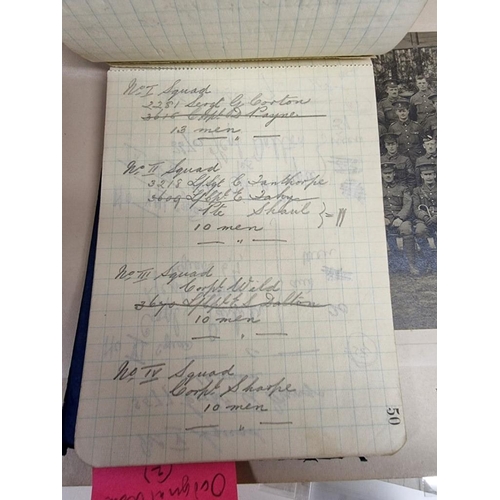 No I Squad
2281 Sergt G. Corton
3618 Cpl D Rayner
13 men
— " —
No II Squad
3218 L/Sgt C. Janthorpe
3609 L/Cpl E
Pte Sharl } =
10 men
— " —
No III Squad
Corpl Wild
3670 L/Cpl S Dalton
10 men
— " —
No IV Squad
Corpl Sharpe
10 men
— " —
50
Original
(2)